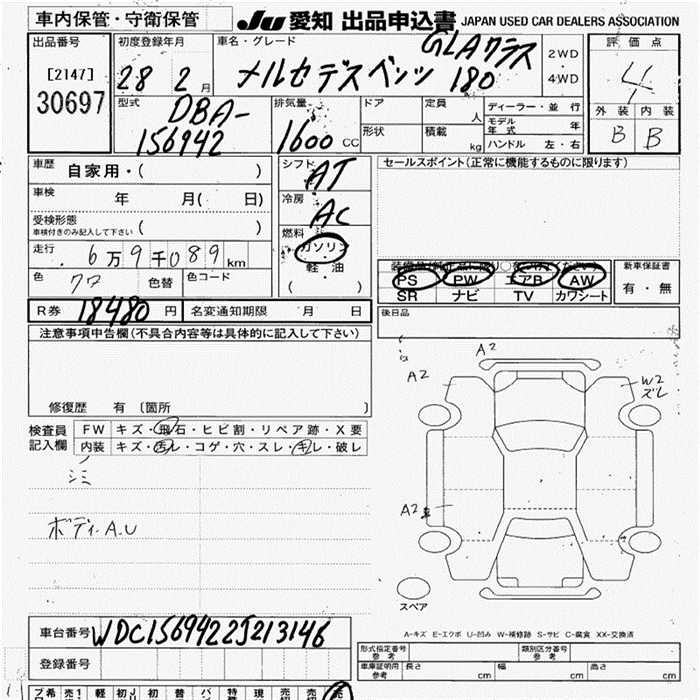 車内保管・守衛保管
JU 愛知 出品申込書 JAPAN USED CAR DEALERS ASSOCIATION
出品番号
[2147]
30697
初度登録年月
28 2 月
車名・グレード
GLAクラス
メルセデスベンツ 180
2WD
・
4WD
評 価 点
4
外 装 内 装
B B
型式
DBA-
156942
排気量
1600 CC
ドア
定員
人
形状
積載
kg
ディーラー・並 行
モデル年 式 年
ハンドル 左・右
車歴 自家用・( )
車検 年 月( 日)
受検形態
車検付きのみ記入して下さい ( )
走行 6万9千089 km
色 クロ 色替 色コード
シフト
AT
冷房
AC
燃料
ガソリン
軽・油
( )
セールスポイント(正常に機能するものに限ります)
PS PW エアB AW
SR ナビ TV カワシート
新車保証書
有・無
後日品
R券 18480 円 名変通知期限 月 日
注意事項申告欄(不具合内容等は具体的に記入して下さい)
修復歴 有 〔箇所 〕
検査員
記入欄
FW キズ・飛石・ヒビ割・リペア跡・X要
内装 キズ・汚レ・コゲ・穴・スレ・キレ・破レ
シミ
ボディA.U
A2
A2
W2
ズレ
A2
スペア
A-キズ E-エクボ U-凹み W-補修跡 S-サビ C-腐食 XX-交換済
車台番号 WDC1569422J213146
登録番号
形式指定番号
参 考
類別区分番号
参 考
車庫証明用
参 考
長さ cm 幅 cm 高さ cm